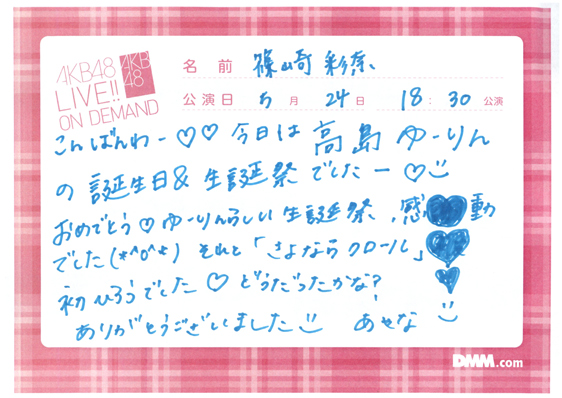 AKB48
LIVE!!
ON DEMAND
AKB
48
名 前 篠崎 彩奈
公演日 5月 24日 18:30 公演
こんばんわー♡♡今日は高島ゆーりん
の誕生日&生誕祭でしたー♡
おめでとう♡ゆーりんらしい生誕祭、感♥動
でした(*^o^*) それと「さよならクロール」♥
初ひろうでした♡どうだったかな? ♥
ありがとうございました あやな
DMM.com